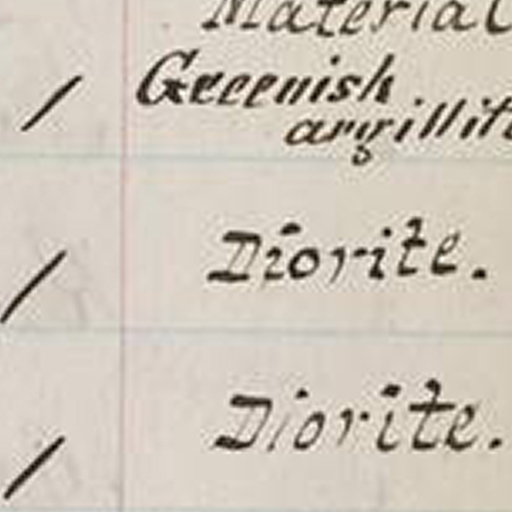 Material
/ Greenish
argillit
/ Diorite.
/ Diorite.